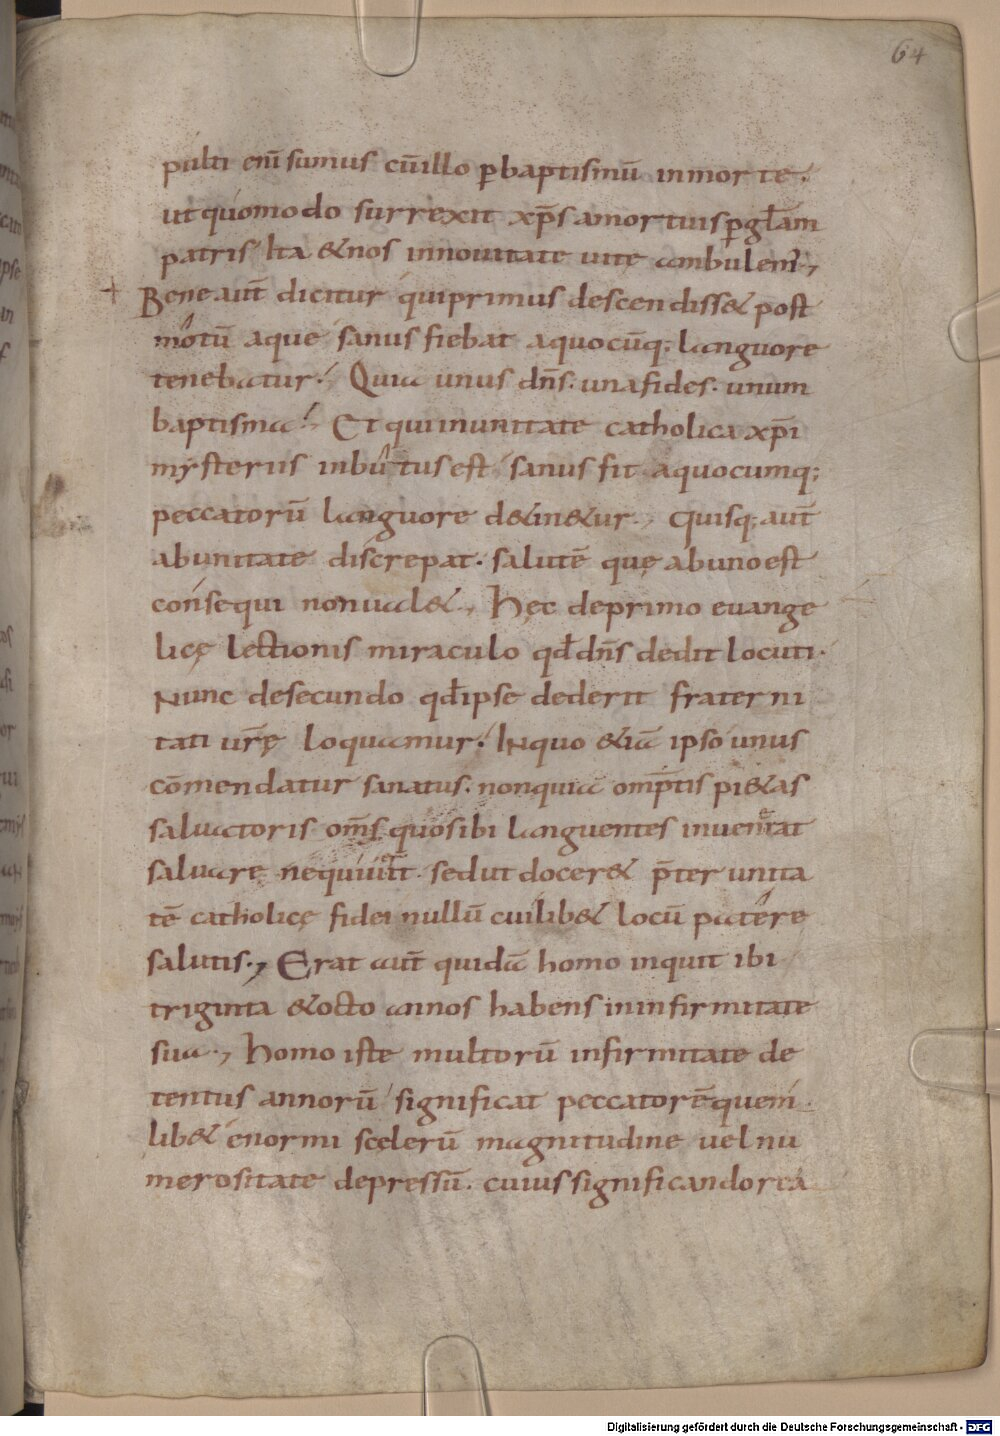 64
pulti enī sumus cū illo ꝑ baptismū in morte.
ut quomodo surrexit xp̄s a mortuis ꝑ gl̄am
patris. Ita & nos in nouitate uitę ambulem̄.,
Bene aut̄ dicitur qui primus descendiss& post
motū aque sanus fiebat a quocūq; languore
tenebatur. Quia unus dn̄s. una fides. unum
baptisma., Et qui in unitate catholica xp̄i
mysteriis inbutus est sanus fit a quocumq;
peccatorū languore d&in&ur., Quisq; aut̄
ab unitate discrepat. salutē quę ab uno est
consequi non ual&., Hęc de primo euange
licę lectionis miraculo qd̄ dn̄s dedit locuti.
Nunc de secundo qd̄ ipse dederit fraterni
tati ur̄ę loquamur. In quo &iā ipso unus
cōmendatur sanatus. non quia omp̄tis pi&as
saluatoris om̄s quos sibi languentes inuenerat
saluare nequiuit. sed ut docer& p̄ter unita
tē catholicę fidei nullū cuilib& locū patere
salutis., Erat aut̄ quidā homo inquit ibi
triginta & octo annos habens in infirmitate
sua., Homo iste multorū infirmitate de
tentus annorū significat peccatorē quem
lib& enormi scęlerū magnitudine uel nu
merositate depressū. cuius significandoreá
Digitalisierung gefördert durch die Deutsche Forschungsgemeinschaft - DFG